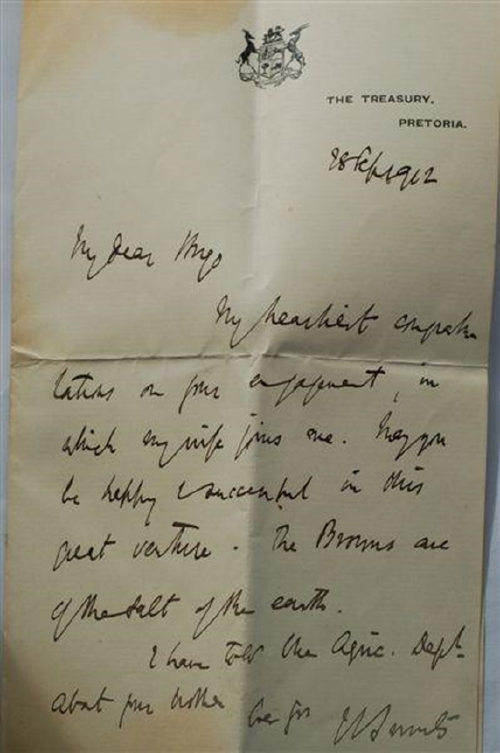 THE TREASURY.
PRETORIA.
28 Sept 1912
My dear Hugo
My heartiest congratu
lations on your engagement, in
which my wife joins me. May you
be happy & successful in this
great venture. The Browns are
of the salt of the earth.
I have told the Agric. Dept.
about your brother